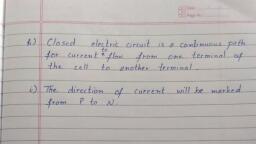 b) Closed electric circuit is a continuous path
for current to flow from one terminal of
the cell to another terminal.
c) The direction of current will be marked
from P to N.